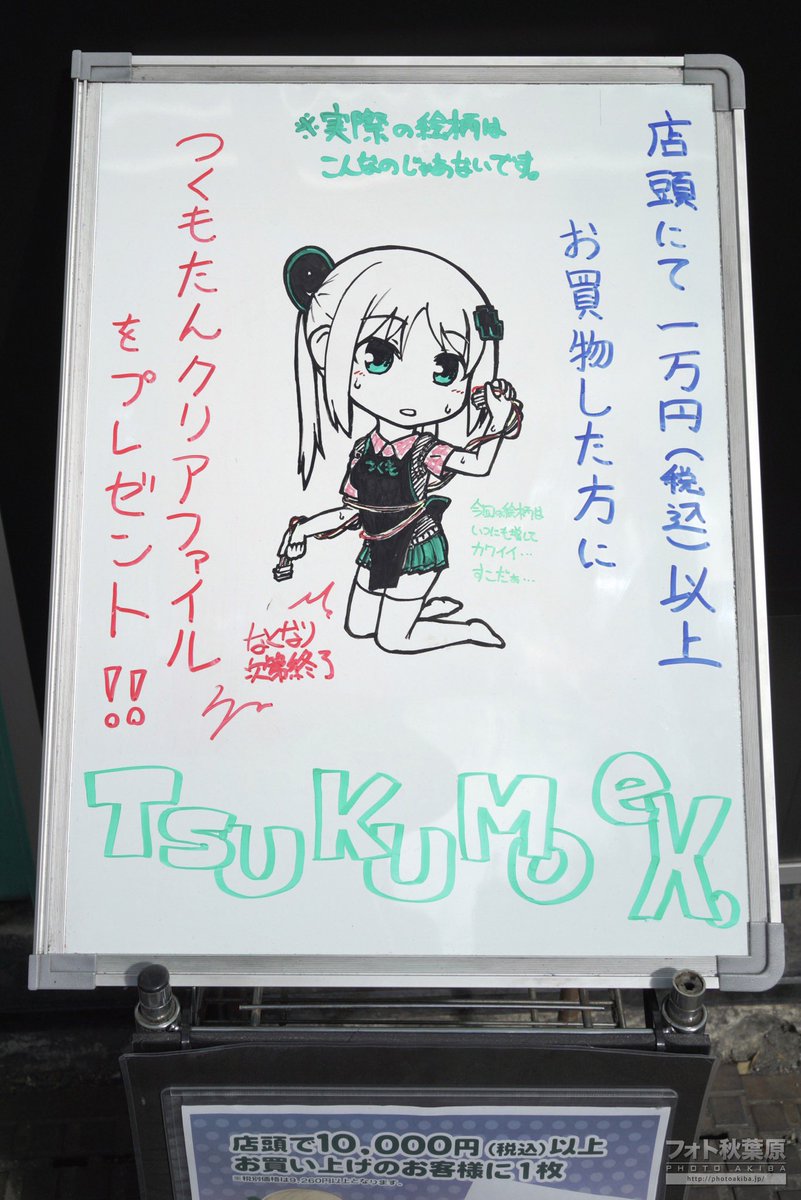 ※実際の絵柄は
こんなのじゃあないです。
店頭にて一万円(税込)以上
お買物した方に
つくもたんクリアファイル
をプレゼント!!
つくも
今回の絵柄は
いつにも増して
カワイイ…
すこだぁ…
なくなり
次第終了
TSUKUMO eX.
店頭で10,000円(税込)以上
お買い上げのお客様に1枚
※税別価格は9,260円以上となります。
フォト秋葉原
PHOTO AKIBA
http://photoakiba.jp/